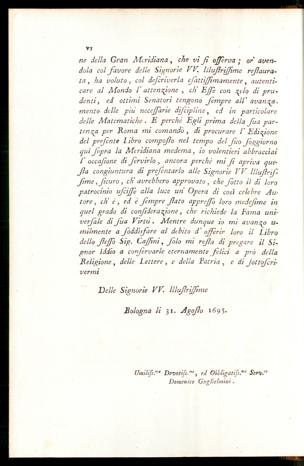 VI
ne della Gran Meridiana, che vi si osserva; or' aven-
dola col favore delle Signorie VV. Illustrissime restaura-
ta, ha voluto, col descriverla esattissimamente, autenti-
care al Mondo l'attenzione, ch'Esse con zelo di pru-
denti, ed ottimi Senatori tengono sempre all'avanza-
mento delle più necessarie discipline, ed in particolare
delle Matematiche. E perchè Egli prima della sua par-
tenza per Roma mi comandò, di procurare l'Edizione
del presente Libro composto nel tempo del suo soggiorno
quì sopra la Meridiana medema, io volentieri abbracciai
l'occasione di servirlo, ancora perchè mi si apriva que-
sta congiuntura di presentarlo alle Signorie VV Illustris-
sime, sicuro, ch'avrebbero approvato, che sotto il di loro
patrocinio uscisse alla luce un'Opera di così celebre Au-
tore, ch'è, ed è sempre stato appresso loro medesime in
quel grado di considerazione, che richiede la Fama uni-
versale di sua Virtù. Mentre dunque io mi avanzo u-
milmente a soddisfare al debito d'offerir loro il Libro
dello stesso Sig. Cassini, solo mi resta di pregare il Si-
gnor Iddio a conservarle eternamente felici a prò della
Religione, delle Lettere, e della Patria, e di sottoscri-
vermi
Delle Signorie VV. Illustrissime
Bologna li 31. Agosto 1695.
Umiliss.mo Devotiss.mo, ed Obbligatiss.mo Serv.re
Domenico Guglielmini.